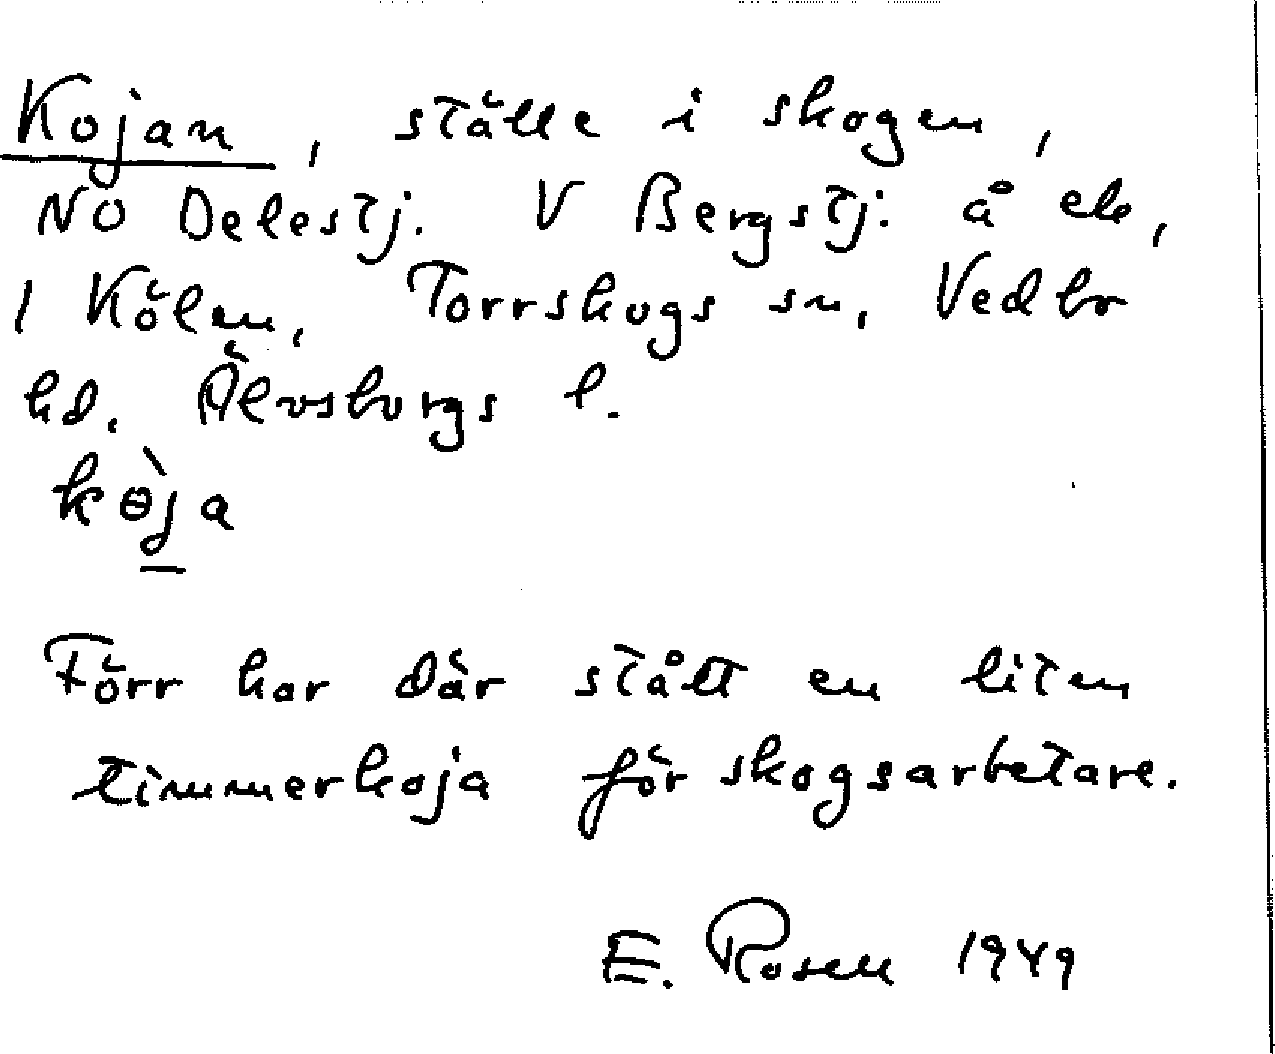 Kojan, ställe i skogen,
NO Delestj. V Bergstj. å ek,
1 Kölen, Torrskogs sn, Vedbo
hd. Älvsborgs l.
kɵ̀ja
Förr har där stått en liten
timmerkoja för skogsarbetare.
E. Rosell 1949